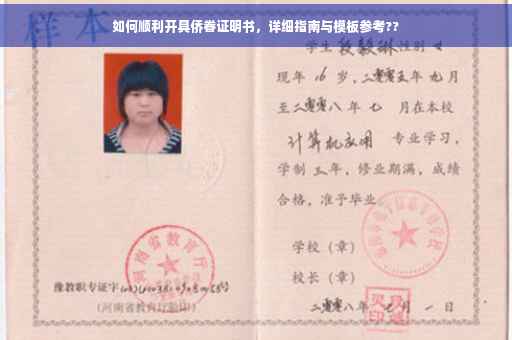 如何顺利开具侨眷证明书，详细指南与模板参考??
样本
学生段毅琳性别女
现年16岁，二零零五年九月
至二零零八年七月在本校
计算机应用 专业学习，
学制三年，修业期满，成绩
合格，准予毕业。
学校（章）
校长（章）
二零零八年七月一日
河南省教育厅
豫教职专证字
（河南省教育厅验印）